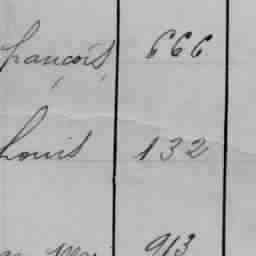 françois 666
Louis 132
913